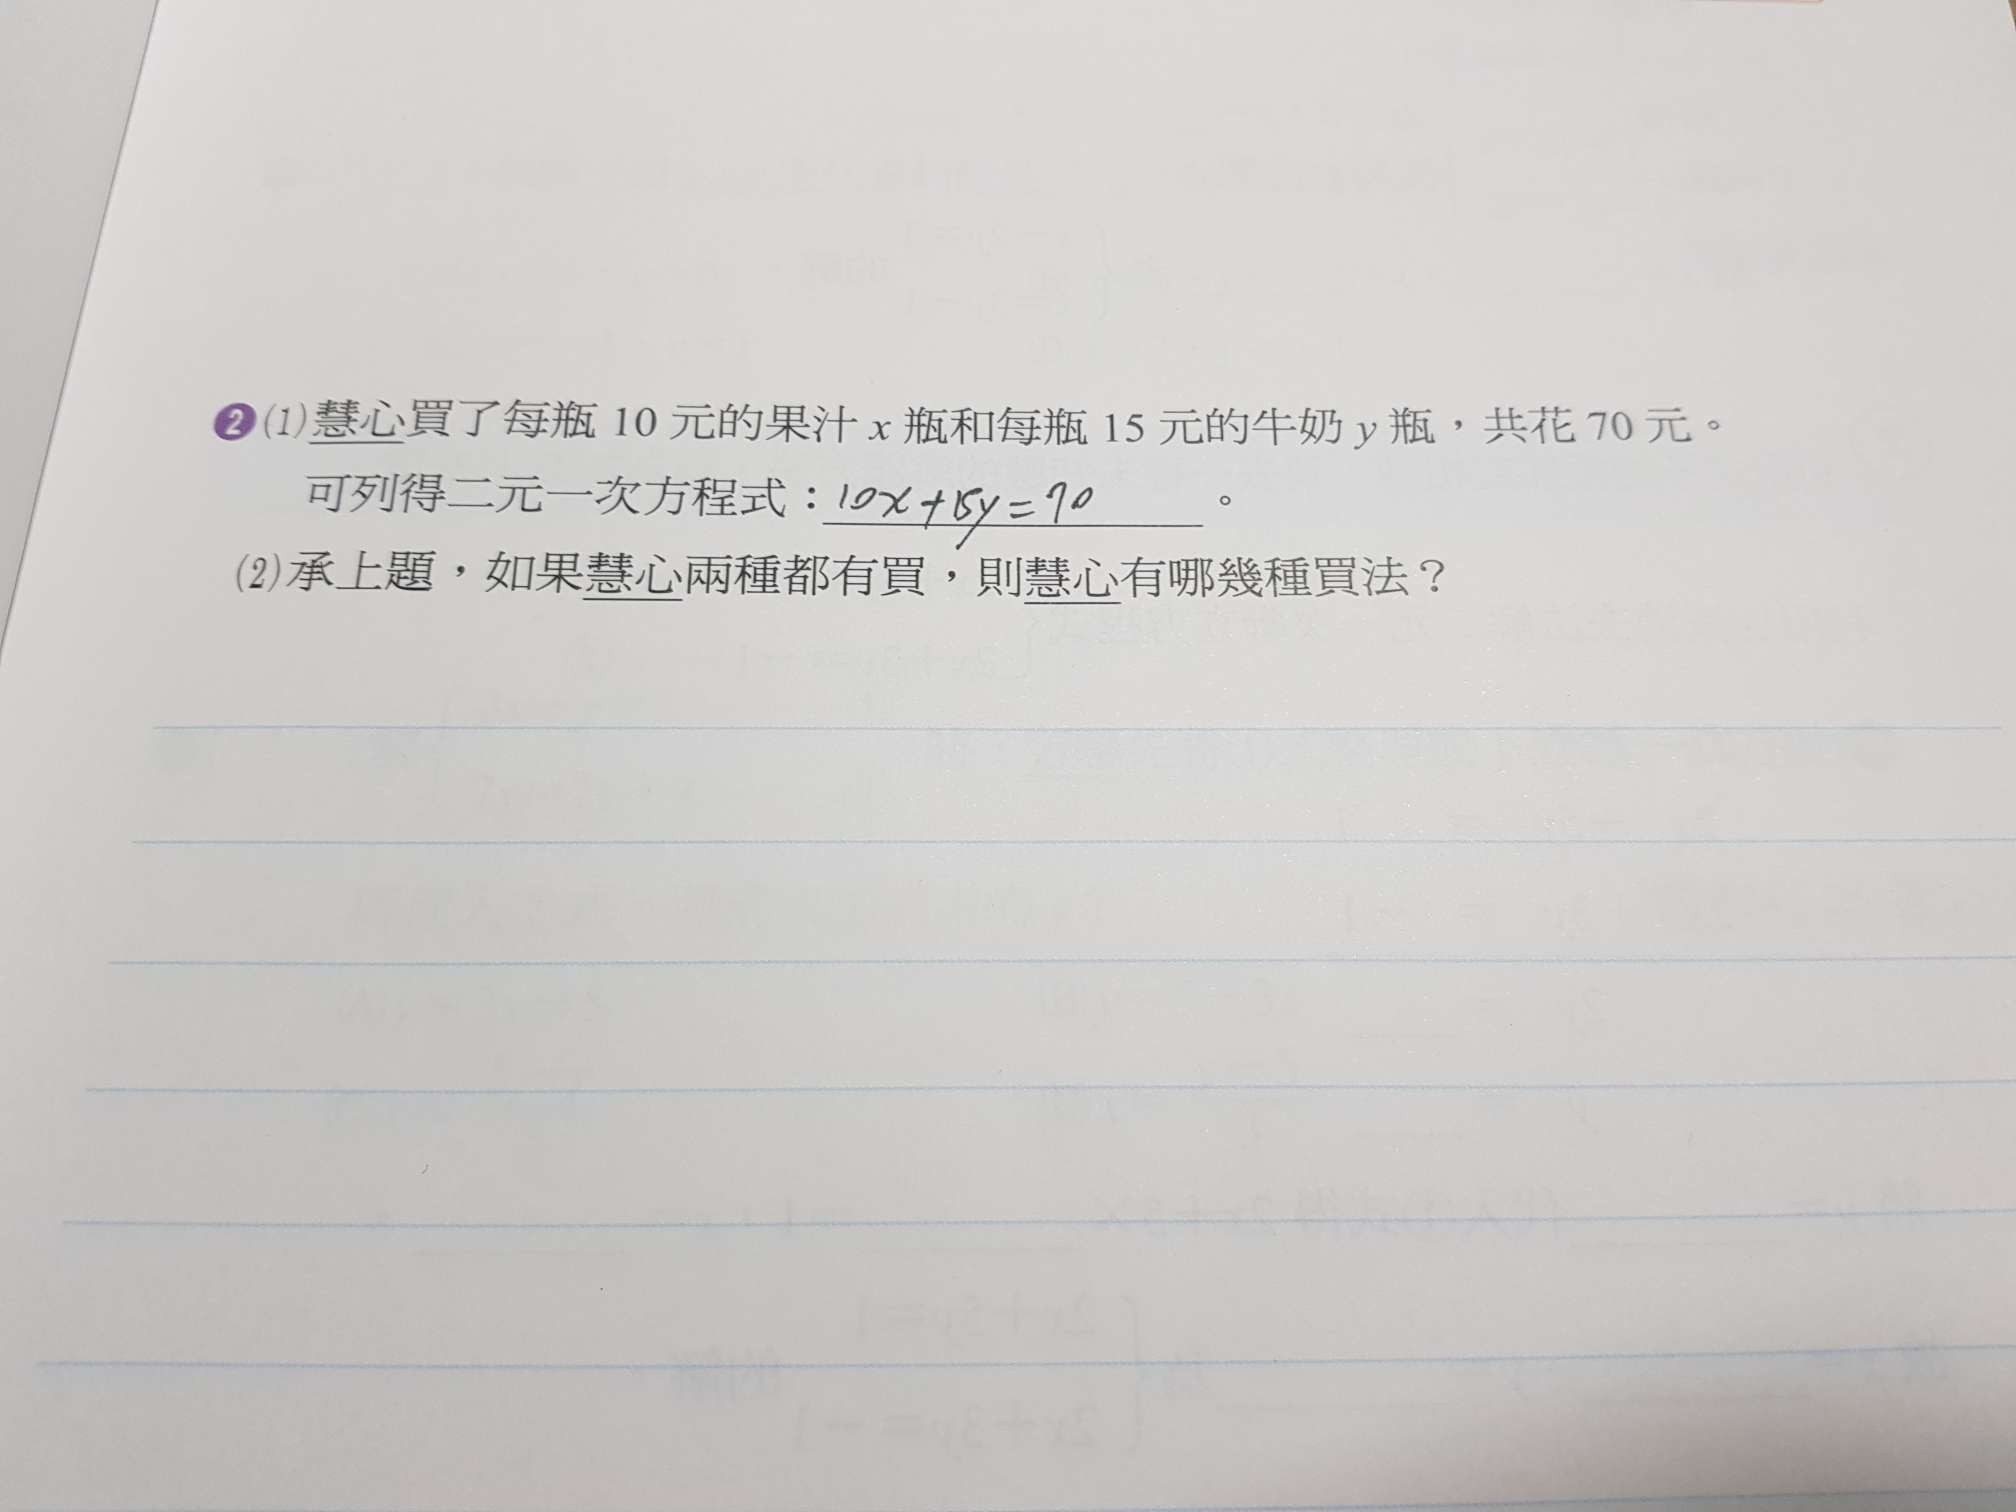 ❷(1)慧心買了每瓶 10 元的果汁 x 瓶和每瓶 15 元的牛奶 y 瓶，共花 70 元。
可列得二元一次方程式：10x+15y=70。
(2)承上題，如果慧心兩種都有買，則慧心有哪幾種買法？